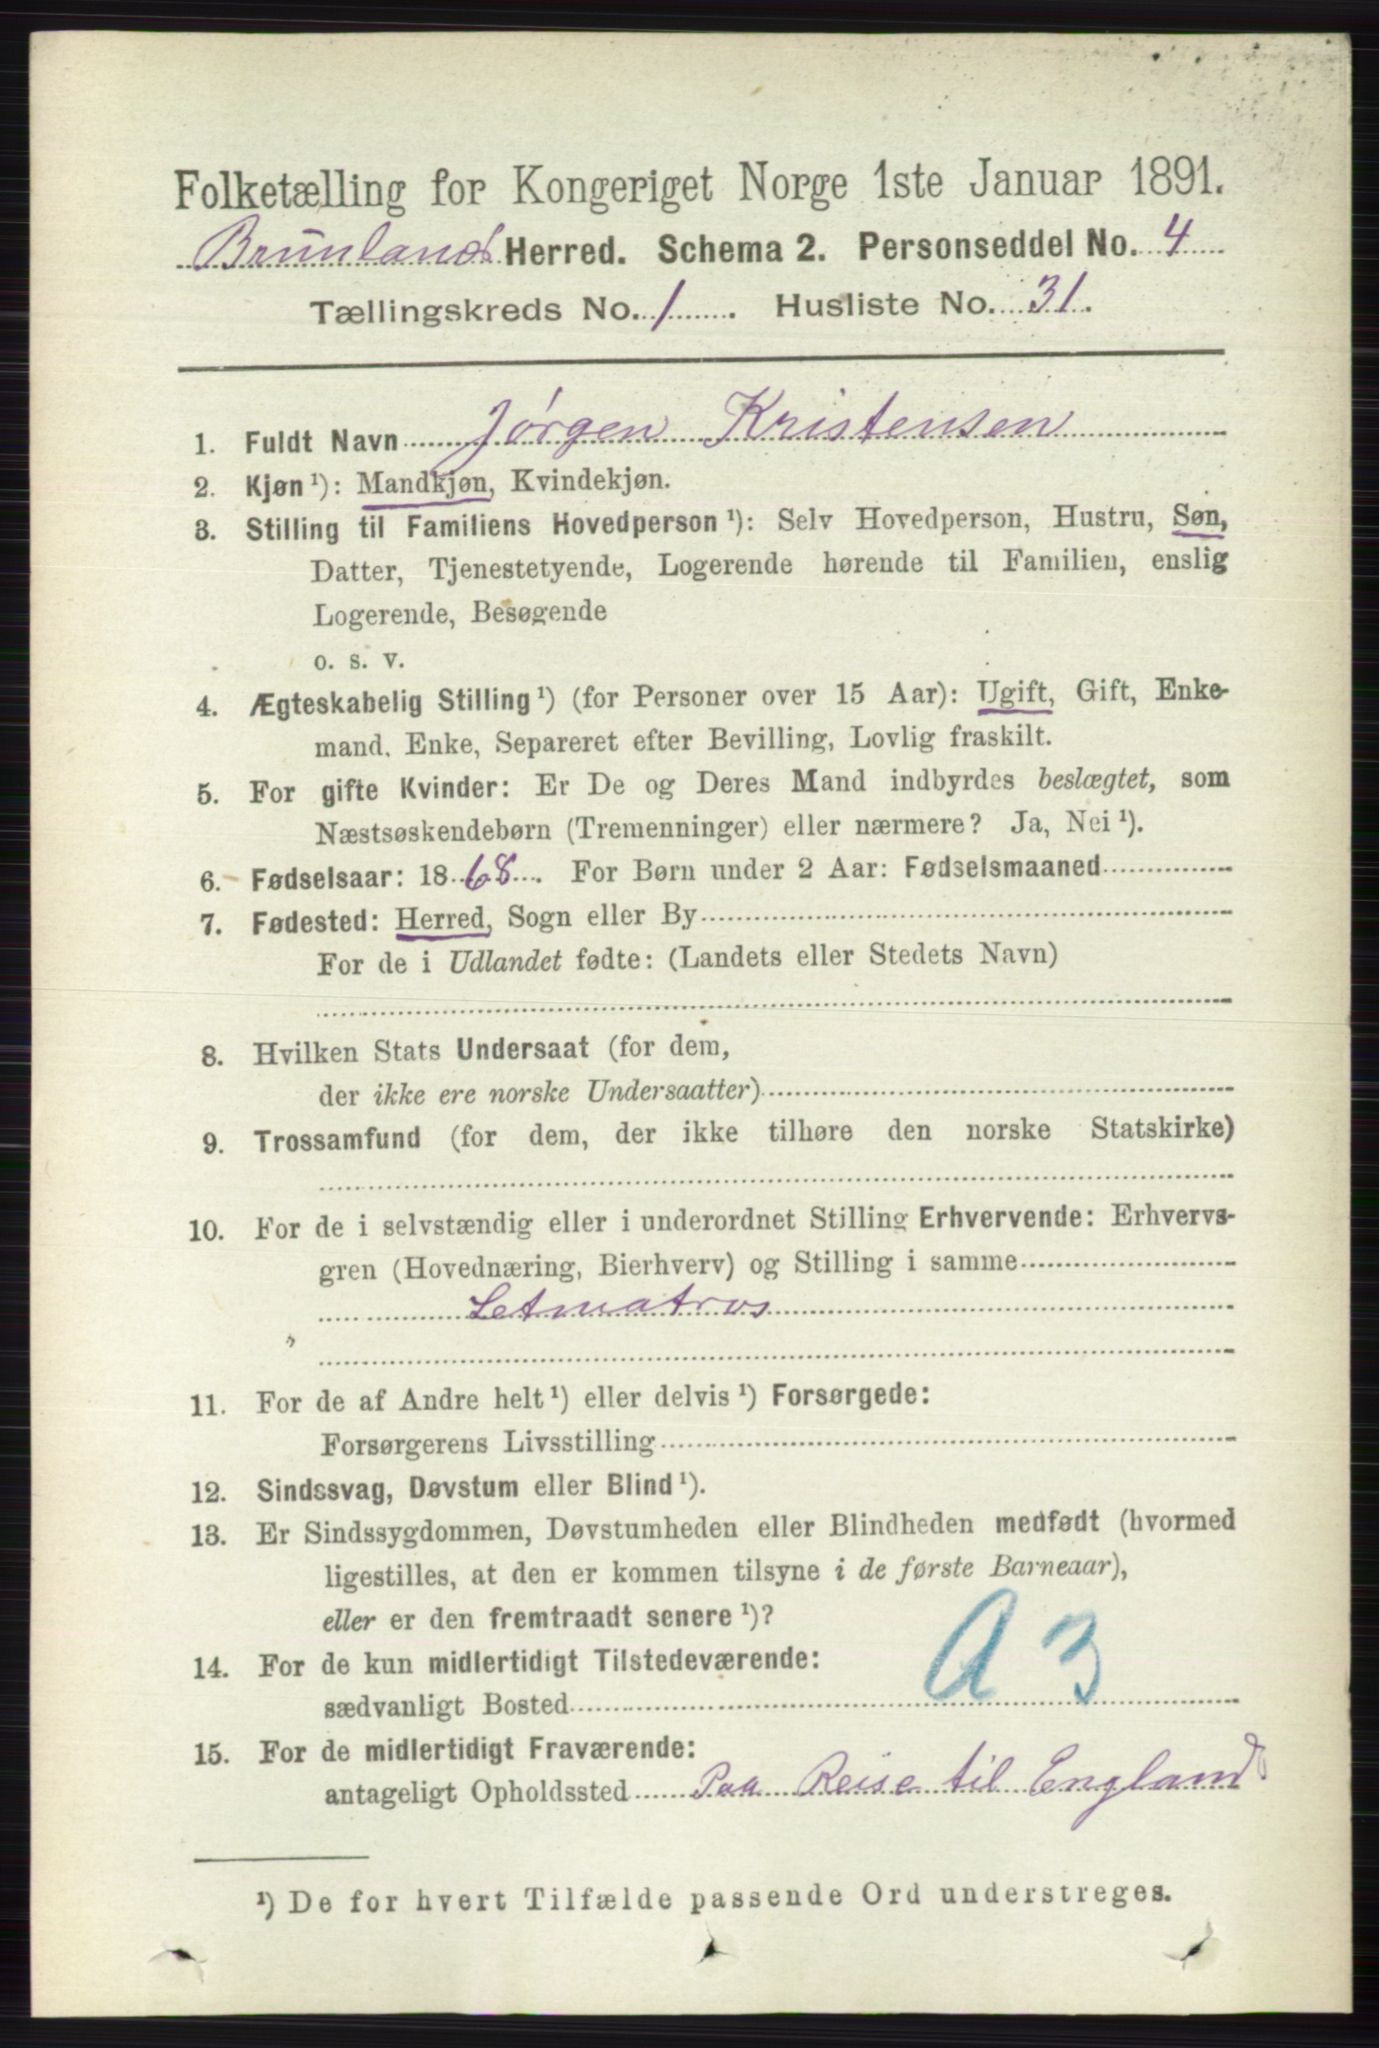 Folketælling for Kongeriget Norge 1ste Januar 1891.
Brunlands Herred. Schema 2. Personseddel No. 4
Tællingskreds No. 1. Husliste No. 31.
1. Fuldt Navn Jørgen Kristensen
2. Kjøn ¹): Mandkjøn, Kvindekjøn.
3. Stilling til Familiens Hovedperson ¹): Selv Hovedperson, Hustru, Søn,
Datter, Tjenestetyende, Logerende hørende til Familien, enslig
Logerende, Besøgende
o. s. v.
4. Ægteskabelig Stilling ¹) (for Personer over 15 Aar): Ugift, Gift, Enke-
mand, Enke, Separeret efter Bevilling, Lovlig fraskilt.
5. For gifte Kvinder: Er De og Deres Mand indbyrdes beslægtet, som
Næstsøskendebørn (Tremenninger) eller nærmere? Ja, Nei ¹).
6. Fødselsaar: 1868. For Børn under 2 Aar: Fødselsmaaned
7. Fødested: Herred, Sogn eller By
For de i Udlandet fødte: (Landets eller Stedets Navn)
8. Hvilken Stats Undersaat (for dem,
der ikke ere norske Undersaatter)
9. Trossamfund (for dem, der ikke tilhøre den norske Statskirke)
10. For de i selvstændig eller i underordnet Stilling Erhvervende: Erhvervs-
gren (Hovednæring, Bierhverv) og Stilling i samme
Letmatros
11. For de af Andre helt ¹) eller delvis ¹) Forsørgede:
Forsørgerens Livsstilling
12. Sindssvag, Døvstum eller Blind ¹).
13. Er Sindssygdommen, Døvstumheden eller Blindheden medfødt (hvormed
ligestilles, at den er kommen tilsyne i de første Barneaar),
eller er den fremtraadt senere ¹)?
A 3
14. For de kun midlertidigt Tilstedeværende:
sædvanligt Bosted
15. For de midlertidigt Fraværende:
antageligt Opholdssted Paa Reise til England
¹) De for hvert Tilfælde passende Ord understreges.